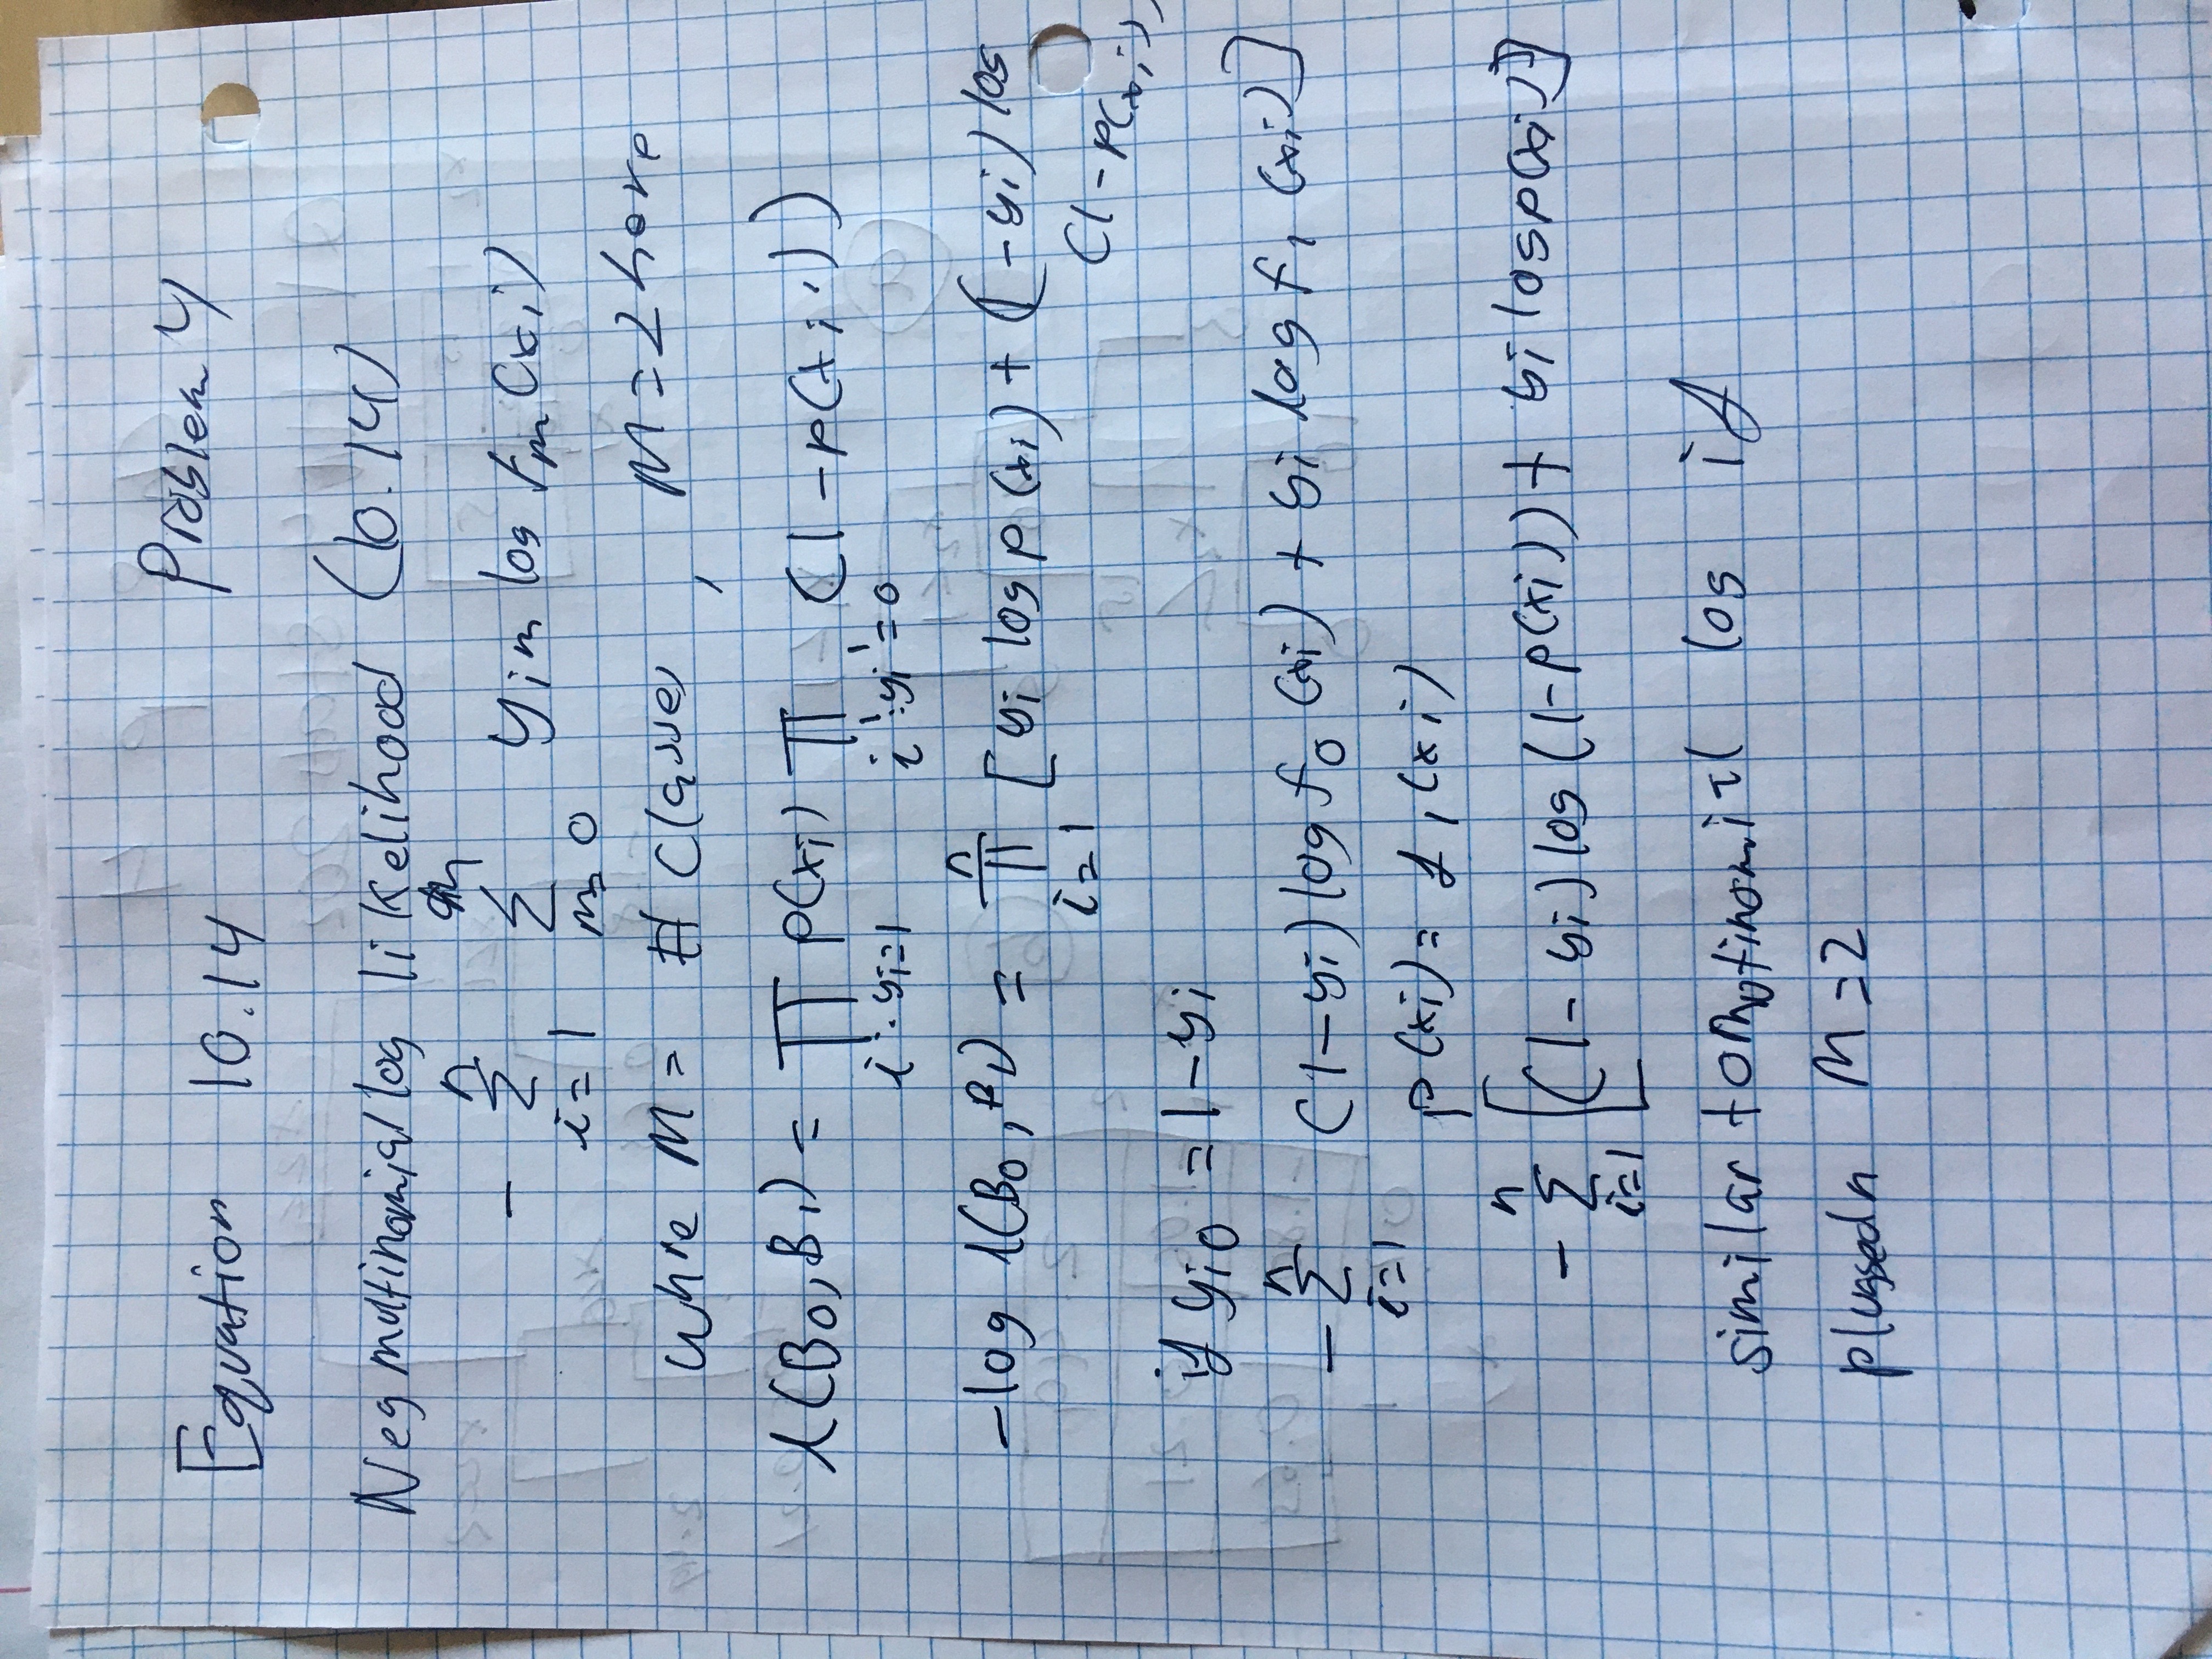 Problem 4
Equation 10.14
Neg multinomial log likelihood (10.14)
- n Σ i=1 Σ m=0 yim log fm(xi)
whre M = # classes , M=2 here
l(B0,B1) = ∏ i:yi=1 p(xi) ∏ i':yi'=0 (1-p(xi'))
-log l(B0,B1) = n ∏ i=1 [yi log p(xi) + (1-yi) log
(1-p(xi))
if yi0 = 1-yi
- n Σ i=1 (1-yi) log f0(xi) + yi log f1(xi)]
p(xi) = f1(xi)
- n Σ i=1 [(1-yi) log (1-p(xi)) + yi log p(xi)]
similar to mutinomial log if
plugged n M=2